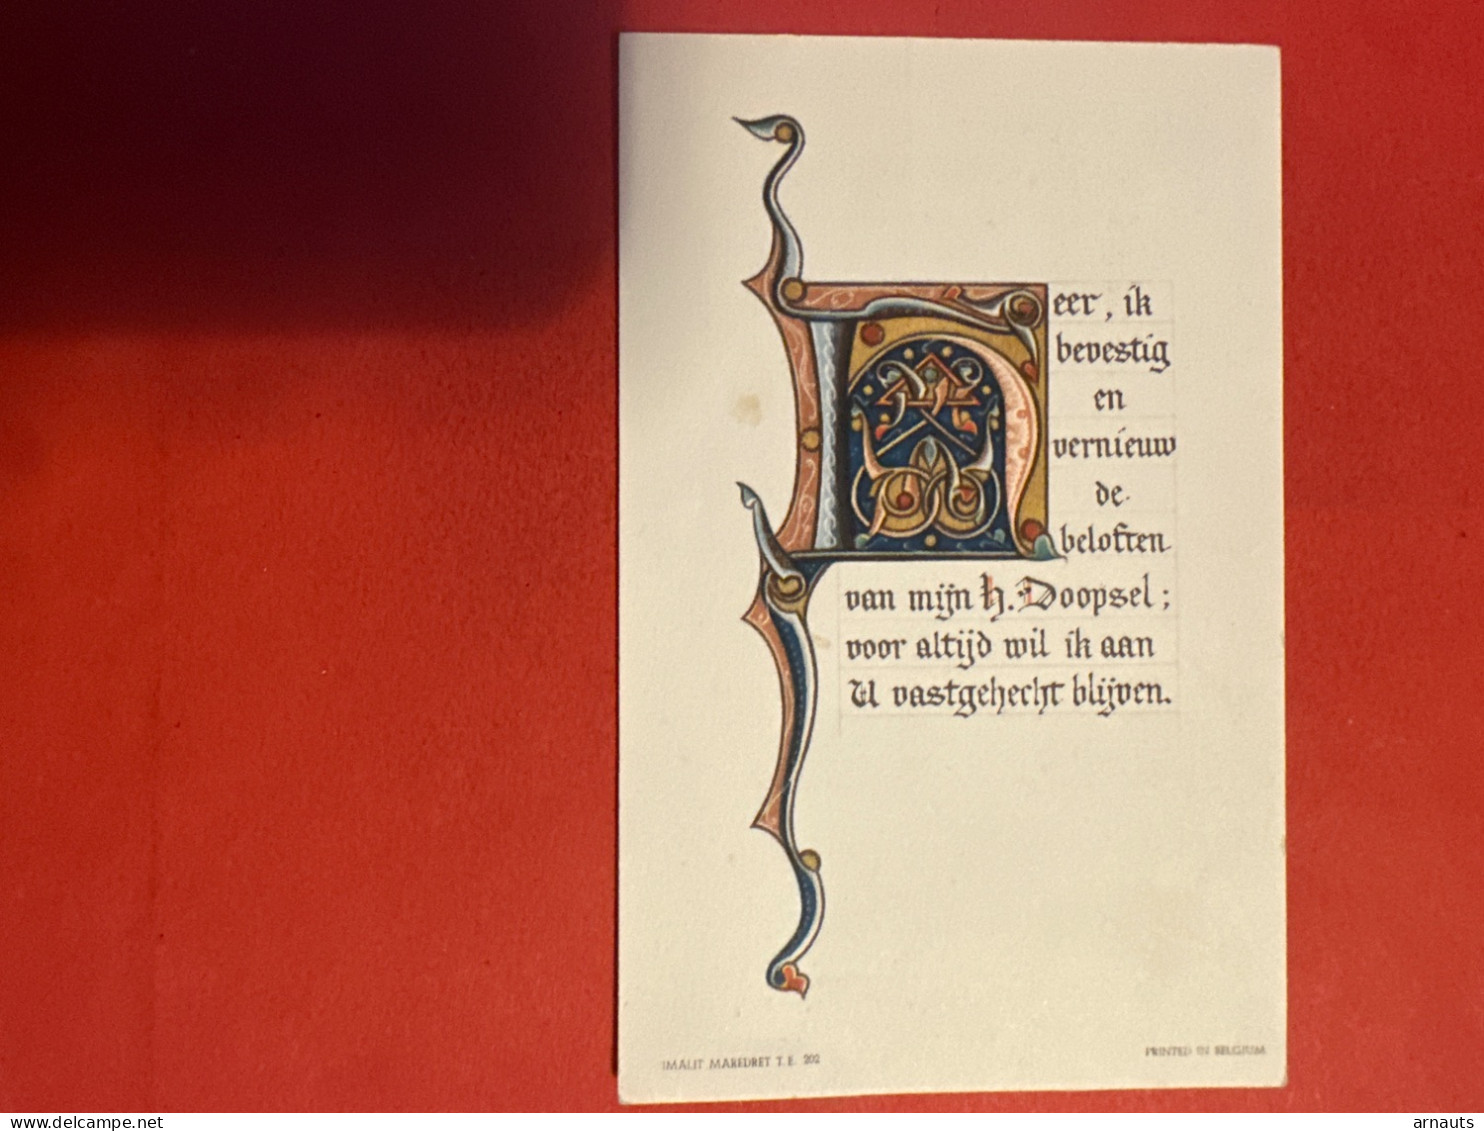 Heer, ik
bevestig
en
vernieuw
de
beloften
van mijn H. Doopsel;
voor altijd wil ik aan
U vastgehecht blijven.
IMALIT MAREDRET T. E. 202
PRINTED IN BELGIUM
www.delcampe.net
arnauts